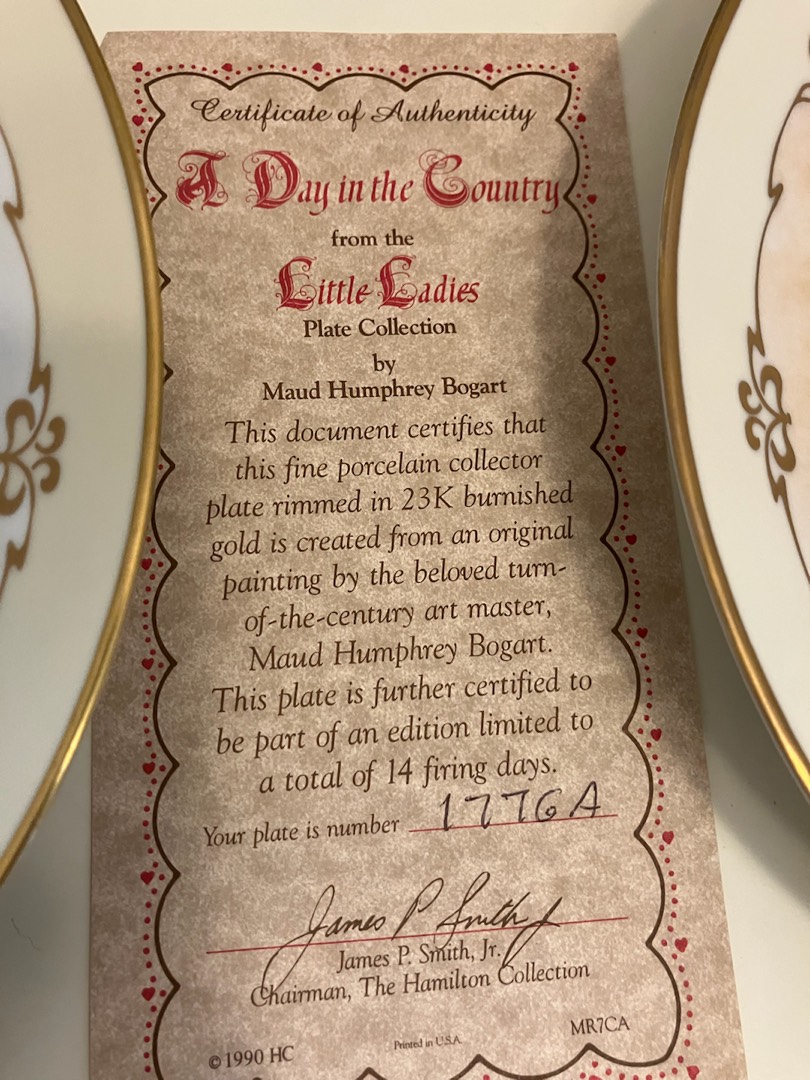 Certificate of Authenticity
A Day in the Country
from the
Little Ladies
Plate Collection
by
Maud Humphrey Bogart
This document certifies that
this fine porcelain collector
plate rimmed in 23K burnished
gold is created from an original
painting by the beloved turn-
of-the-century art master,
Maud Humphrey Bogart.
This plate is further certified to
be part of an edition limited to
a total of 14 firing days.
Your plate is number 1776A
James P Smith Jr
James P. Smith, Jr.
Chairman, The Hamilton Collection
© 1990 HC Printed in U.S.A. MR7CA